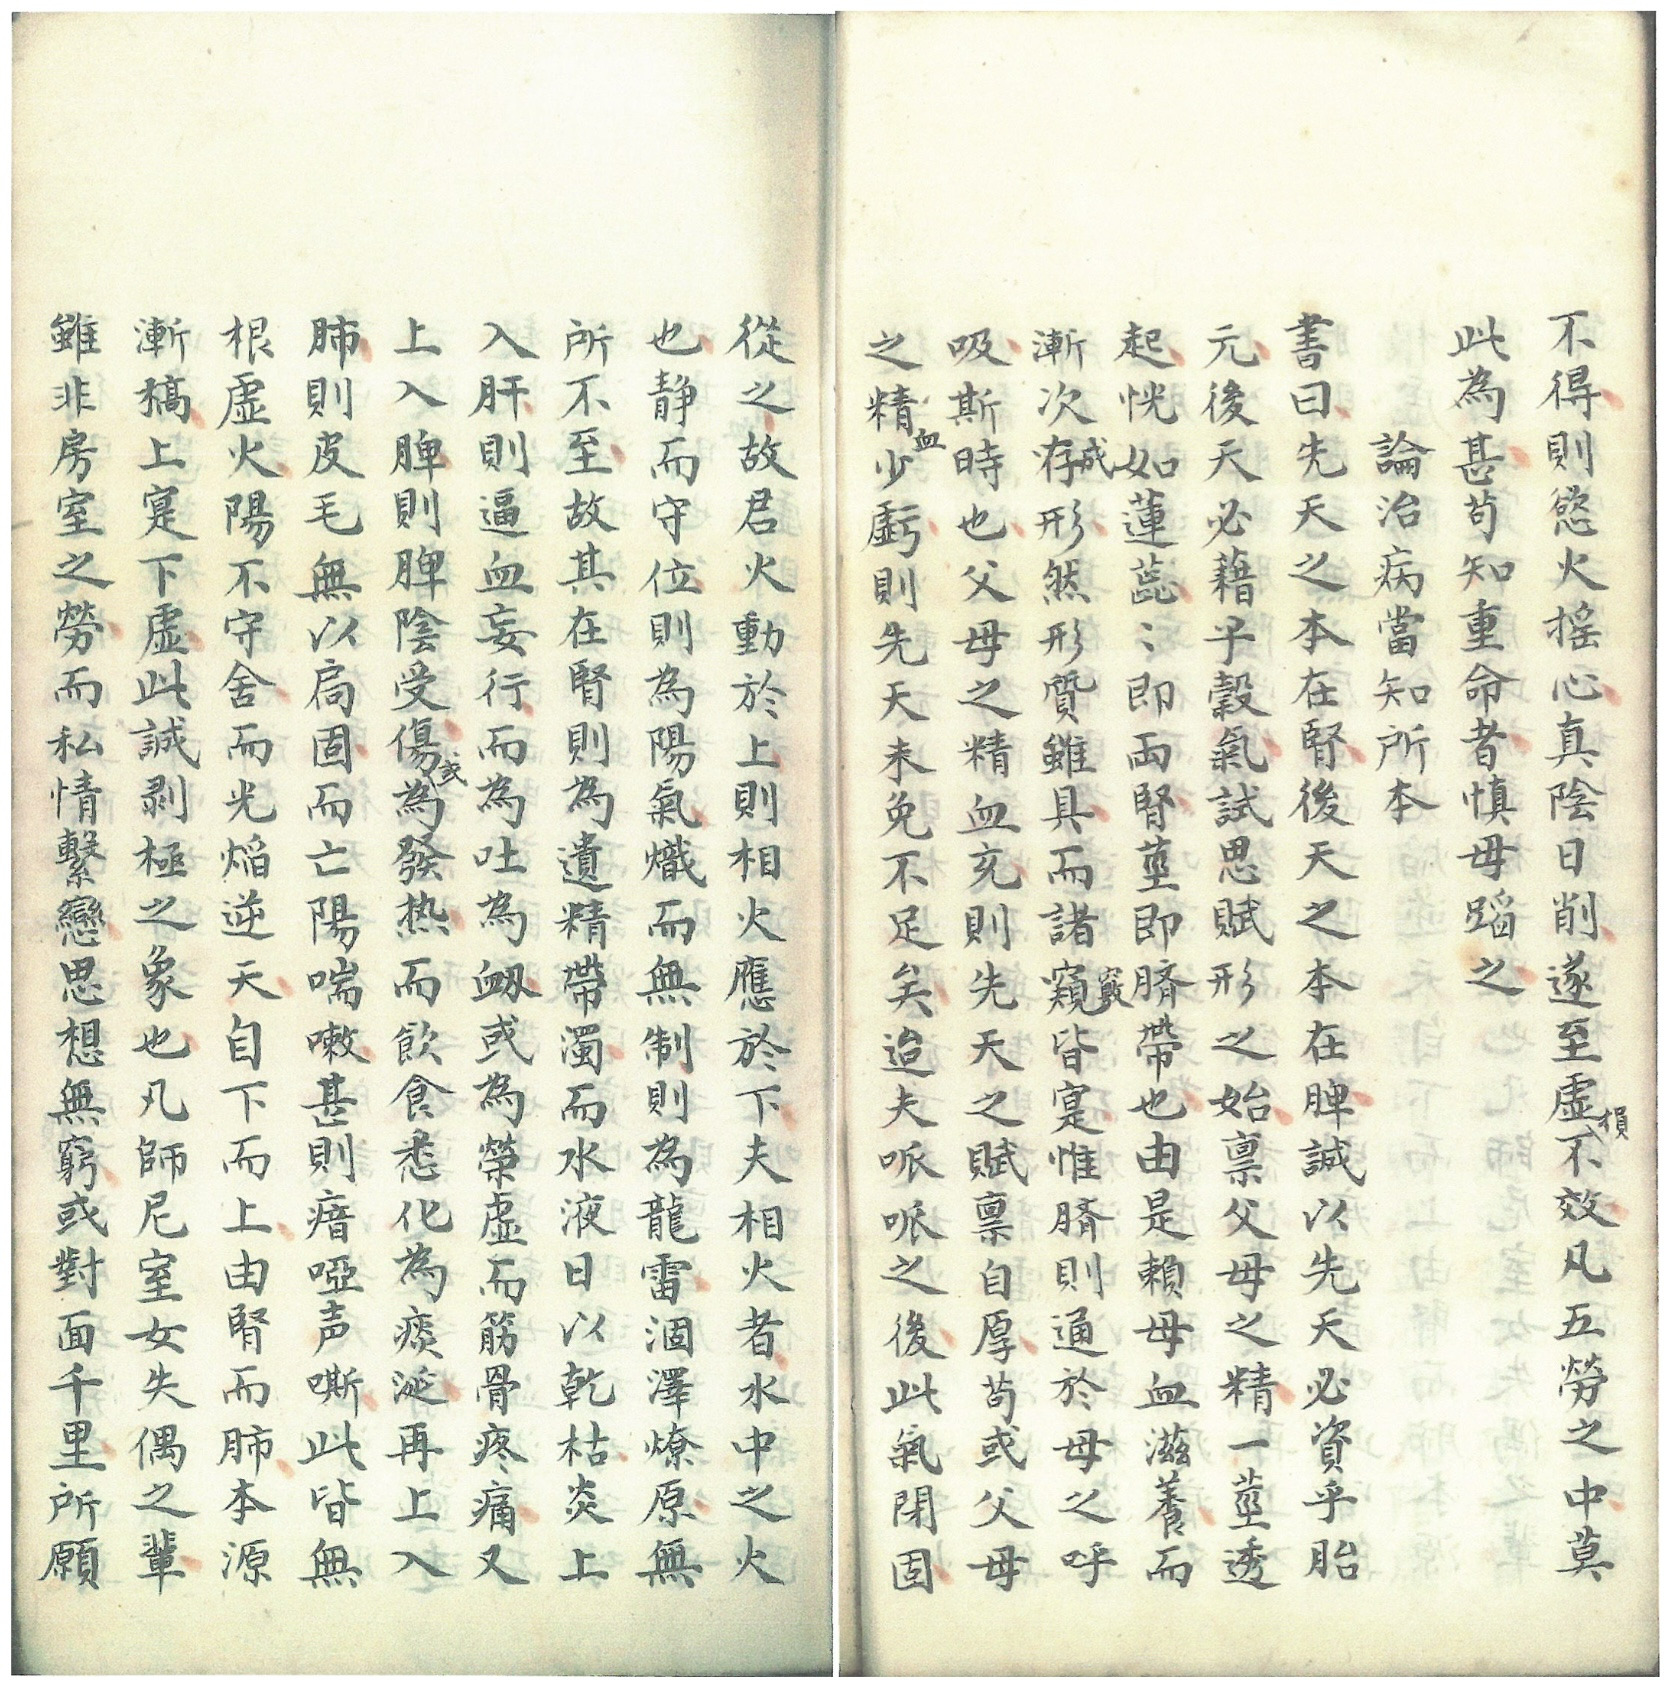 從之故君火動於上則相火應於下夫相火者水中之火
也静而守位則為陽氣熾而無制則為龍雷涸澤燎原無
所不至故其在腎則為遺精帶濁而水液日以乾枯炎上
入肝則逼血妄行而為吐為衂或為榮虛而筋骨疼痛又
上入脾則脾陰受傷或為發热而飲食悉化為痰涎再上入
肺則皮毛無以扃固而亡陽喘嗽甚則瘖啞声嘶此皆無
根虛火陽不守舍而光焰逆天自下而上由腎而肺本源
漸槁上寔下虛此誠剥極之象也凡師尼室女失偶之輩
雖非房室之勞而私情繫戀思想無窮或對面千里所願
不得則慾火搖心真陰日削遂至虛損不效凡五勞之中莫
此為甚苟知重命者慎毋蹈之
論治病當知所本
書曰先天之本在腎後天之本在脾誠以先天必資乎胎
元後天必藉乎穀氣試思賦形之始禀父母之精一莖透
起恍如蓮蕋〻即兩腎莖即臍帶也由是賴母血滋養而
漸次存成形然形質雖具而諸窺竅皆寔惟臍則通於母之呼
吸斯時也父母之精血充則先天之賦禀自厚苟或父母
之精血少虧則先天未免不足矣迨夫哌哌之後此氣閉固